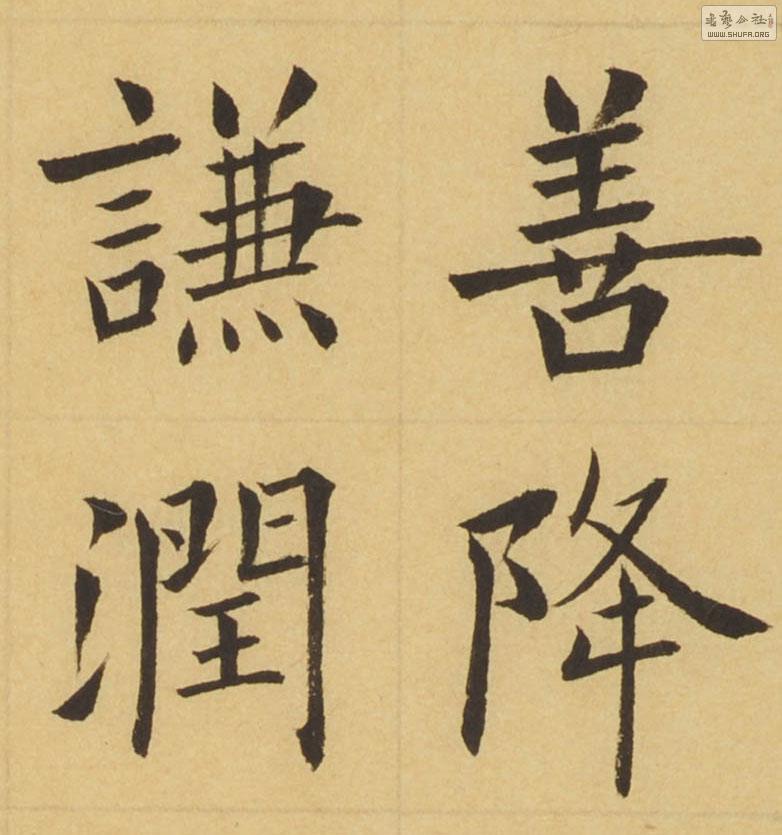 善降
謙潤
書藝公社
WWW.SHUFA.ORG